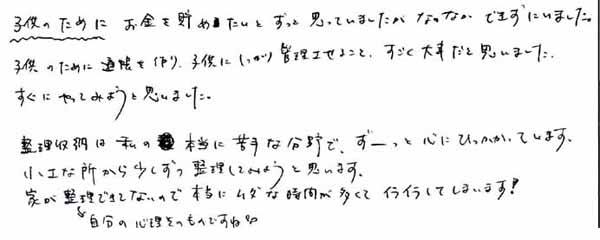 子供のために お金を貯めたいとずっと思っていましたが なかなか できずにいました。
子供のために 通帳を作り、子供に しっかり 管理させること、すごく大事だと思いました。
すぐに やってみようと思いました。
整理収納は 私の 本当に 苦手な分野で、ずーっと 心に ひっかかっています。
小さな所から少しずつ 整理してみようと思います。
家が整理できてないので 本当に ムダな時間が多くて イライラしてしまいます!
自分の心理そのものですね